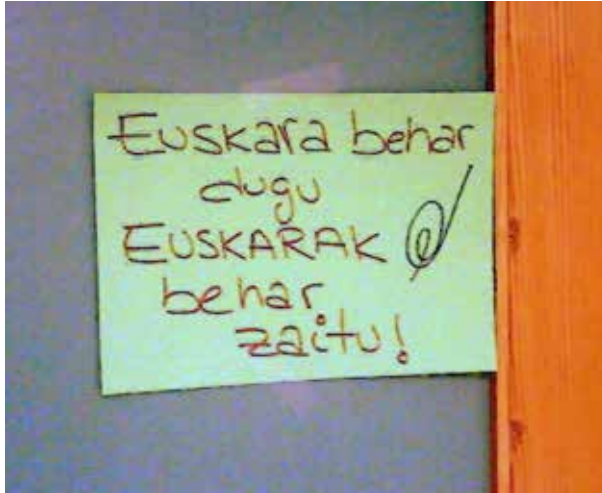 Euskara behar
dugu
EUSKARAK
behar
zaitu!